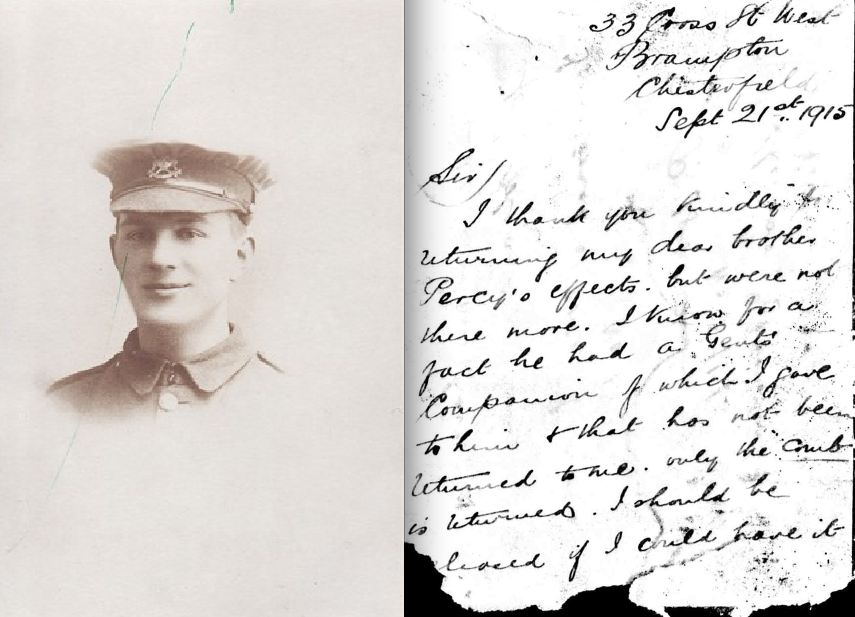 33 Cross St West
Brampton
Chesterfield
Sept 21st. 1915
Sir/
I thank you kindly
returning my dear brother
Percy's effects. but were not
there more. I know for a
fact he had a Gents
Companion of which I gave
to him & that has not been
returned to me. only the comb
is returned. I should be
leased if I could have it